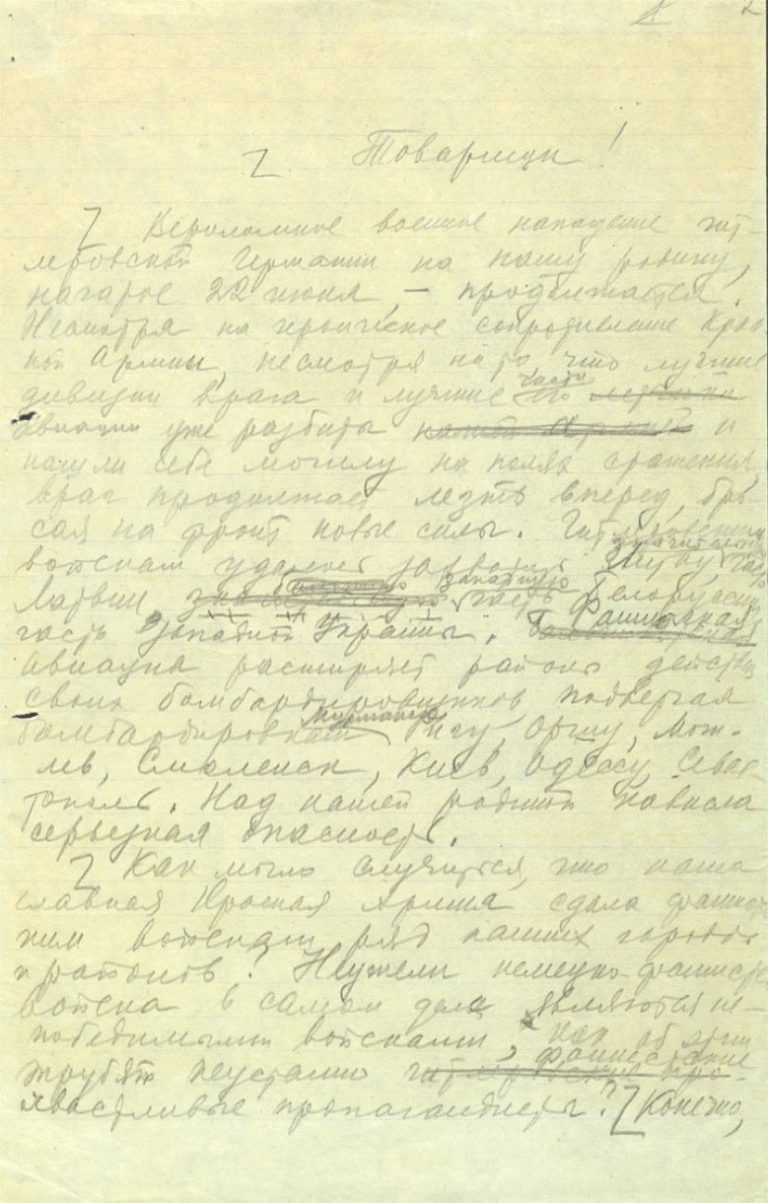 2
Товарищи!
Вероломное военное нападение гит-
леровской Германии на нашу родину,
начатое 22 июня, – продолжается.
Несмотря на героическое сопротивление Крас-
ной Армии, несмотря на то, что лучшие
дивизии врага и лучшие части его
авиации уже разбиты и
нашли себе могилу на полях сражения,
враг продолжает лезть вперед, бро-
сая на фронт новые силы. Гитлеровским
войскам удалось захватить Литву, значительную часть
Латвии, западную часть Белоруссии,
часть Западной Украины. Фашистская
авиация расширяет районы действия
своих бомбардировщиков, подвергая
бомбардировкам Мурманск, Оршу, Моги-
лев, Смоленск, Киев, Одессу, Севас-
тополь. Над нашей родиной нависла
серьезная опасность.
Как могло случиться, что наша
славная Красная Армия сдала фашистс-
ким войскам ряд наших городов
и районов? Неужели немецко-фашистские
войска в самом деле являются не-
победимыми войсками, как об этом
трубят неустанно фашистские
хвастливые пропагандисты? Конечно,